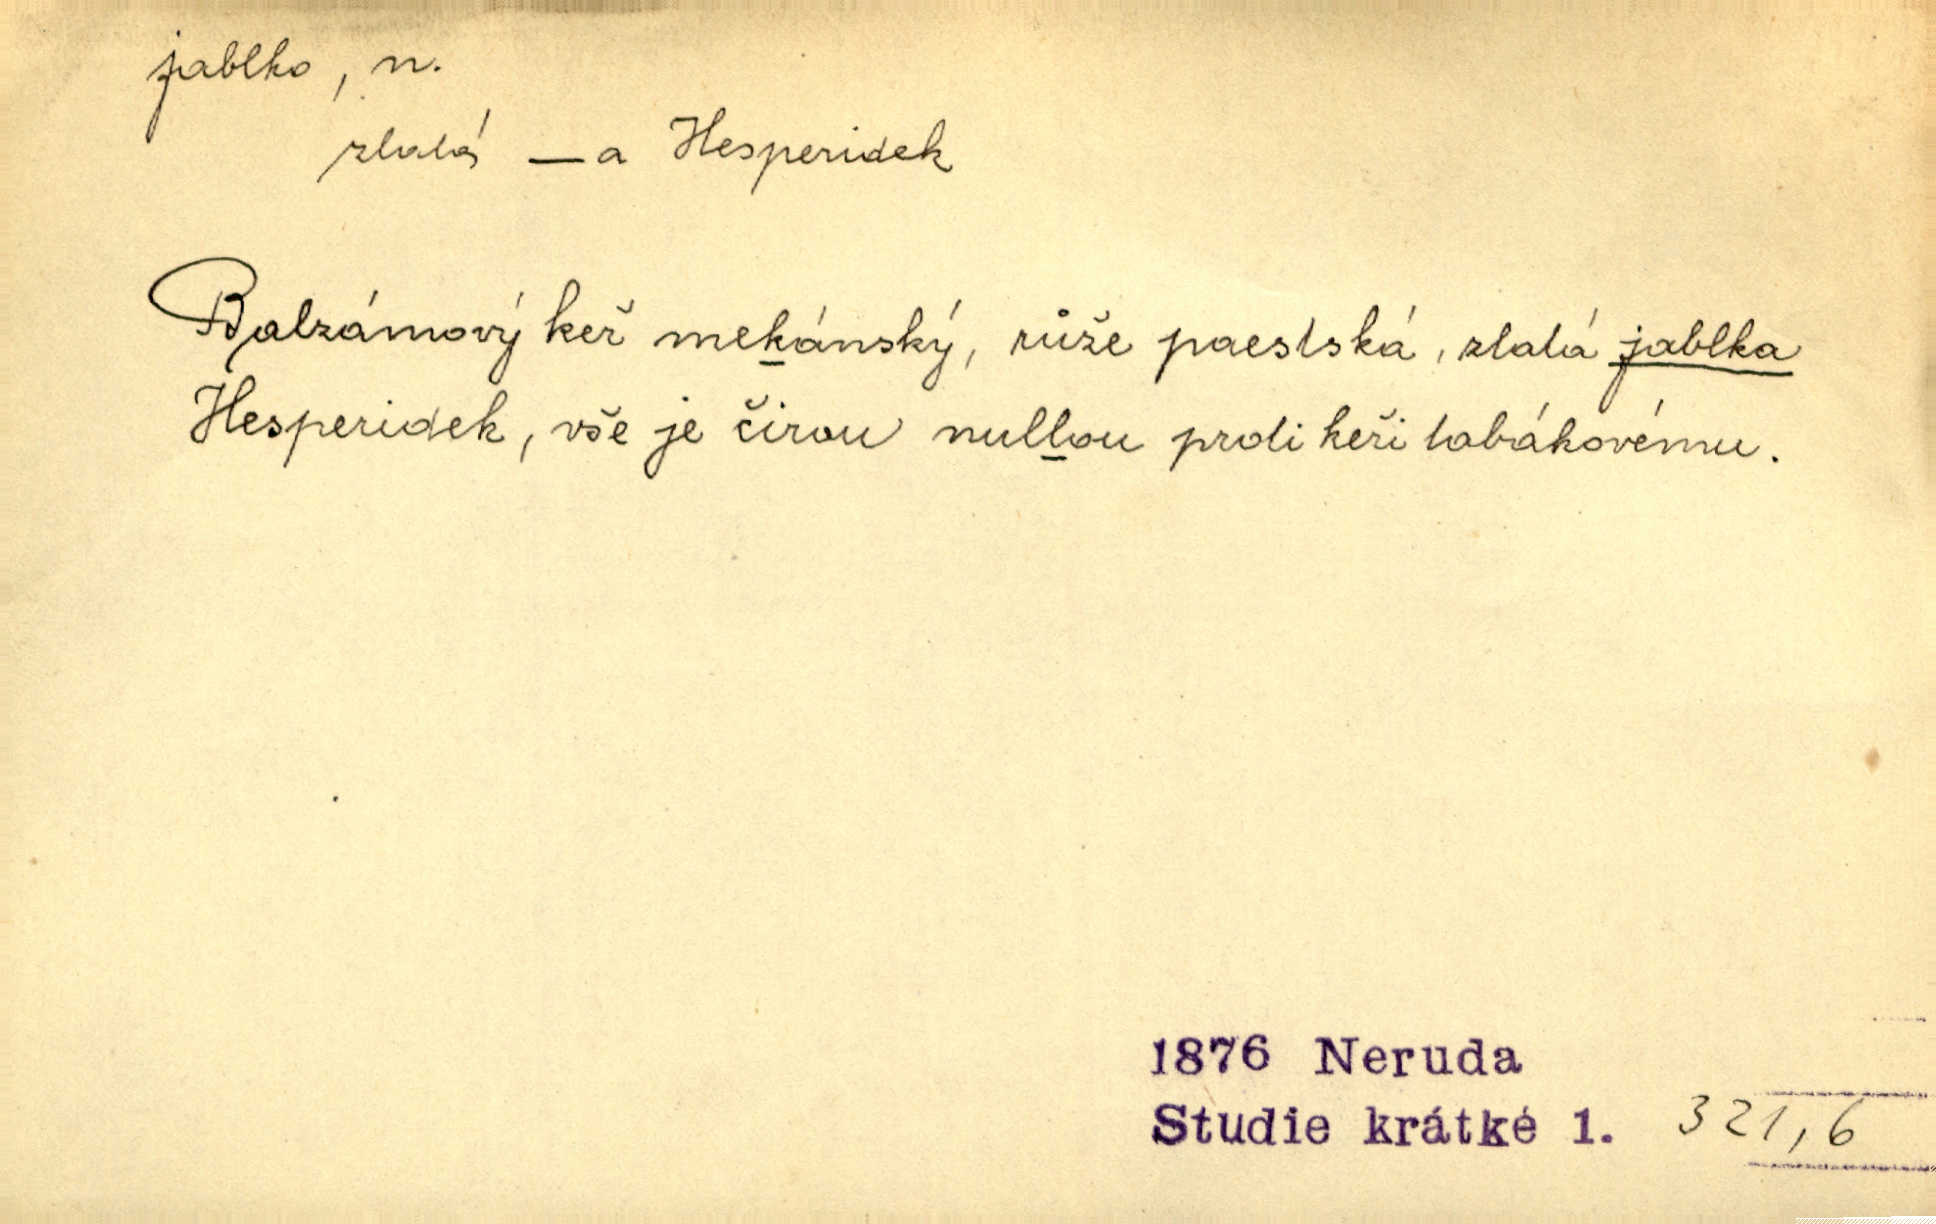 jablko, n.
zlatá —a Hesperidek
Balzámový keř mekánský, růže paestská, zlatá jablka
Hesperidek, vše je čirou nullou proti keři tabákovému.
1876 Neruda
Studie krátké 1. 321,6